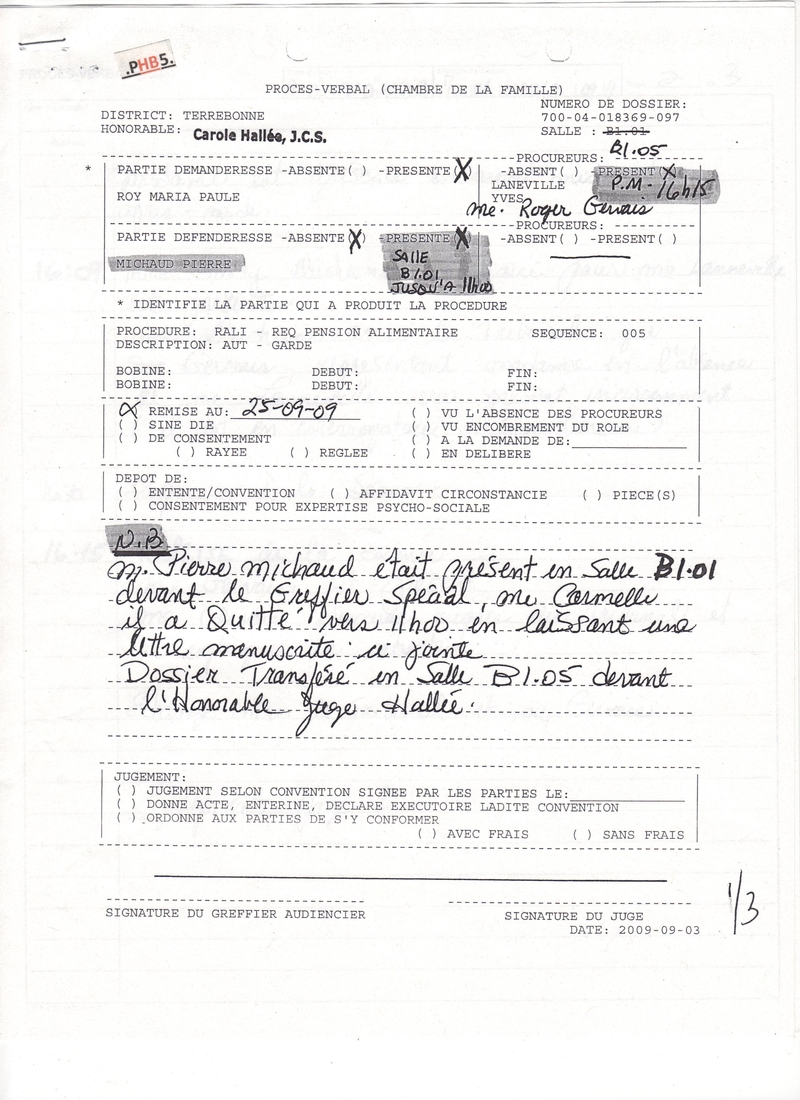 .PHB5.
PROCES-VERBAL (CHAMBRE DE LA FAMILLE)
DISTRICT: TERREBONNE
HONORABLE: Carole Hallée, J.C.S.
NUMERO DE DOSSIER:
700-04-018369-097
SALLE : B1.01
B1.05
PROCUREURS:
* PARTIE DEMANDERESSE -ABSENTE( ) -PRESENTE(X) -ABSENT( ) -PRESENT(X)
P.M. - 16h15
ROY MARIA PAULE
LANEVILLE
YVES
me. Roger Gervais
PROCUREURS:
PARTIE DEFENDERESSE -ABSENTE(X) -PRESENTE(X) -ABSENT( ) -PRESENT( )
MICHAUD PIERRE
SALLE
B1.01
JUSQU'A 11h00
* IDENTIFIE LA PARTIE QUI A PRODUIT LA PROCEDURE
PROCEDURE: RALI - REQ PENSION ALIMENTAIRE SEQUENCE: 005
DESCRIPTION: AUT - GARDE
BOBINE: DEBUT: FIN:
BOBINE: DEBUT: FIN:
(X) REMISE AU: 25-09-09 ( ) VU L'ABSENCE DES PROCUREURS
( ) SINE DIE ( ) VU ENCOMBREMENT DU ROLE
( ) DE CONSENTEMENT ( ) A LA DEMANDE DE:
( ) RAYEE ( ) REGLEE ( ) EN DELIBERE
DEPOT DE:
( ) ENTENTE/CONVENTION ( ) AFFIDAVIT CIRCONSTANCIE ( ) PIECE(S)
( ) CONSENTEMENT POUR EXPERTISE PSYCHO-SOCIALE
N.B
M. Pierre Michaud était présent en Salle B1.01
devant le Greffier Spécial, me Carmelle
il a Quitté vers 11h00 en laissant une
lettre manuscrite ci jointe
Dossier Transféré en Salle B1.05 devant
l'Honorable Juge Hallée.
JUGEMENT:
( ) JUGEMENT SELON CONVENTION SIGNEE PAR LES PARTIES LE:
( ) DONNE ACTE, ENTERINE, DECLARE EXECUTOIRE LADITE CONVENTION
( ) ORDONNE AUX PARTIES DE S'Y CONFORMER
( ) AVEC FRAIS ( ) SANS FRAIS
SIGNATURE DU GREFFIER AUDIENCIER
SIGNATURE DU JUGE
DATE: 2009-09-03
1/3